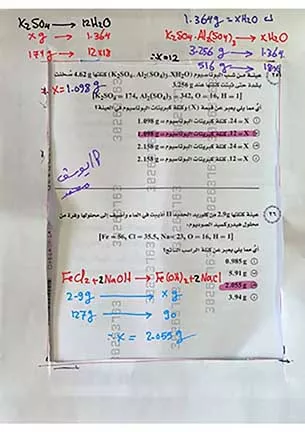 K2SO4 → 12H2O
x g → 1.364
174 g → 12×18
∴ x = 1.098 g
1.364 g = xH2O
K2SO4.Al2(SO4)3 → xH2O
3.256 g → 1.364
516 g → 18x
∴ x = 12
عينة من شب البوتاسيوم (K2SO4.Al2(SO4)3.XH2O) كتلتها 4.62 g سُخنت
بشدة حتى ثبتت كتلتها عند 3.256 g
[K2SO4 = 174, Al2(SO4)3 = 342, O = 16, H = 1]
أي مما يلي يعبر عن قيمة (X) وكتلة كبريتات البوتاسيوم في العينة؟
X = 24، كتلة كبريتات البوتاسيوم = 1.098 g
X = 12، كتلة كبريتات البوتاسيوم = 1.098 g
X = 24، كتلة كبريتات البوتاسيوم = 2.158 g
X = 12، كتلة كبريتات البوتاسيوم = 2.158 g
عينة كتلتها 2.9g من كلوريد الحديد II أذيبت في الماء وأضيف إلى محلولها وفرة من
محلول هيدروكسيد الصوديوم،
[Fe = 56, Cl = 35.5, Na = 23, O = 16, H = 1]
أي مما يلي يعبر عن كتلة الراسب الناتج؟
0.985 g
5.91 g
2.055 g
3.94 g
FeCl2 + 2NaOH → Fe(OH)2 + 2NaCl
2.9 g → x g
127 g → 90
∴ x = 2.055 g